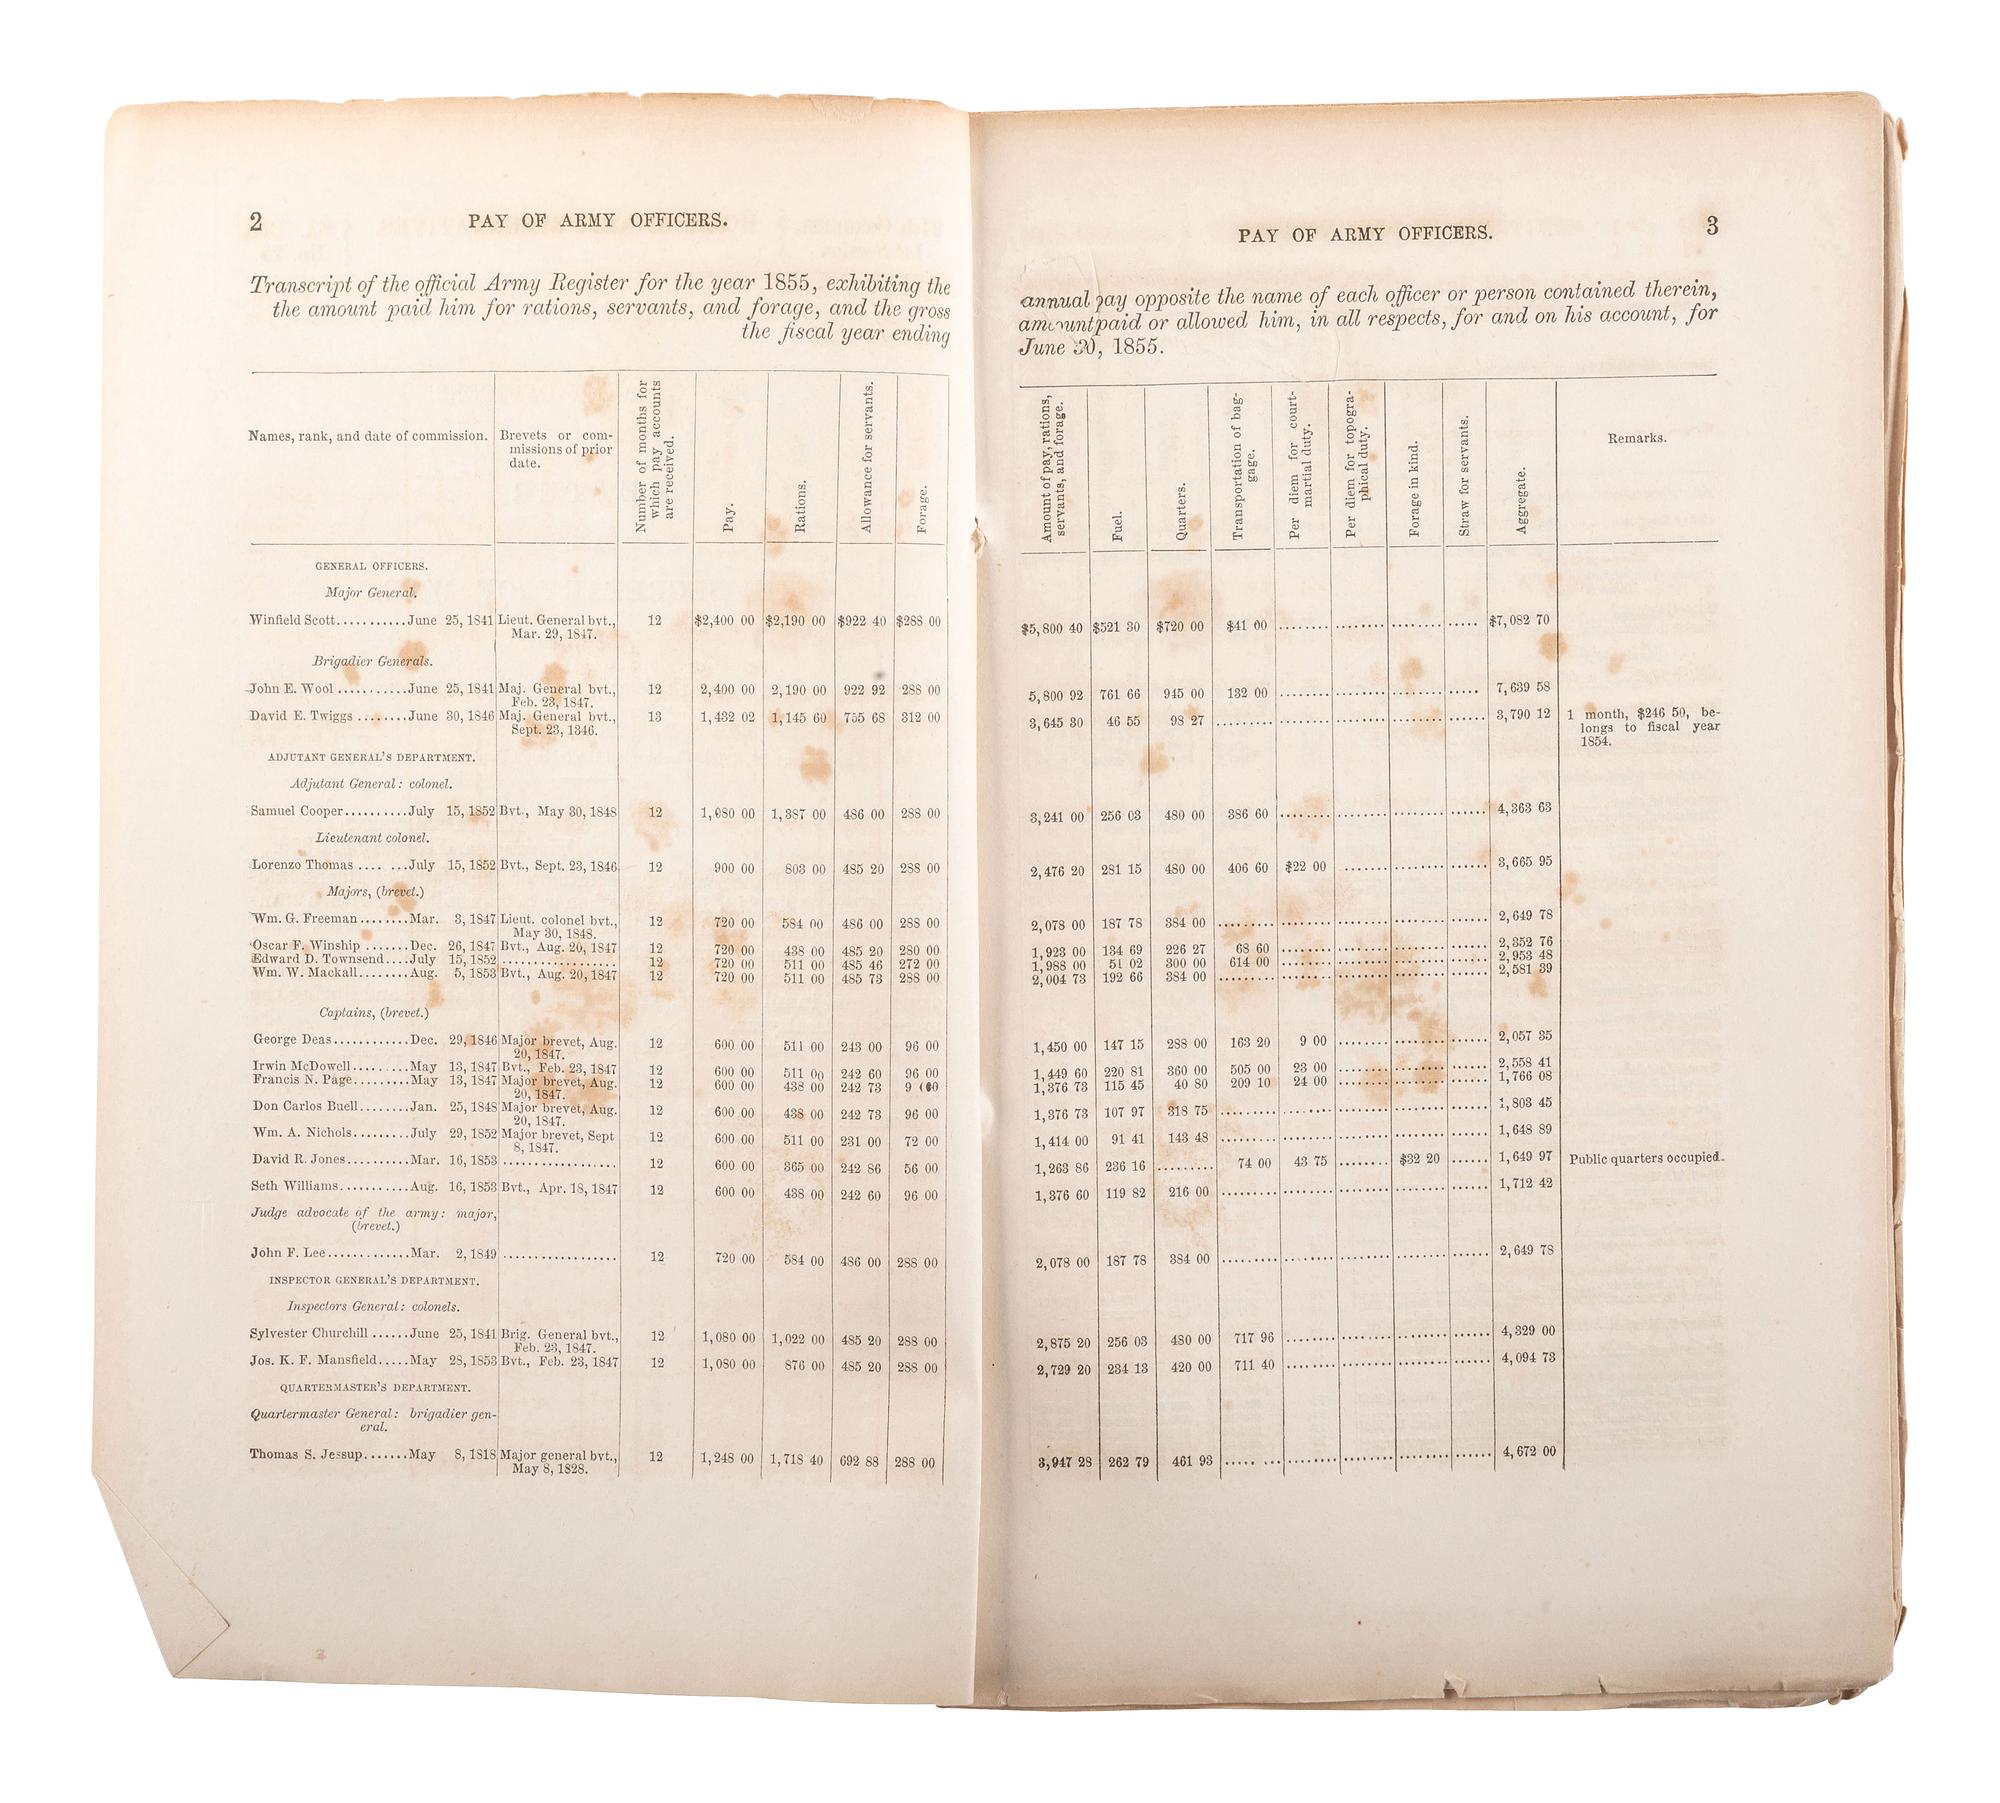 2 PAY OF ARMY OFFICERS.
Transcript of the official Army Register for the year 1855, exhibiting the
the amount paid him for rations, servants, and forage, and the gross
the fiscal year ending
Names, rank, and date of commission.
Brevets or com-
missions of prior
date.
Number of months for
which pay accounts
are received.
Pay.
Rations.
Allowance for servants.
Forage.
GENERAL OFFICERS.
Major General.
Winfield Scott...........June 25, 1841 Lieut. General bvt., 12 $2,400 00 $2,190 00 $922 40 $288 00
Mar. 29, 1847.
Brigadier Generals.
John E. Wool ...........June 25, 1841 Maj. General bvt., 12 2,400 00 2,190 00 922 92 288 00
Feb. 23, 1847.
David E. Twiggs ........June 30, 1846 Maj. General bvt., 13 1,432 02 1,145 60 755 68 312 00
Sept. 23, 1846.
ADJUTANT GENERAL'S DEPARTMENT.
Adjutant General: colonel.
Samuel Cooper..........July 15, 1852 Bvt., May 30, 1848 12 1,080 00 1,387 00 486 00 288 00
Lieutenant colonel.
Lorenzo Thomas .... ...July 15, 1852 Bvt., Sept. 23, 1846 12 900 00 803 00 485 20 288 00
Majors, (brevet.)
Wm. G. Freeman........Mar. 3, 1847 Lieut. colonel bvt., 12 720 00 584 00 486 00 288 00
May 30, 1848.
Oscar F. Winship .......Dec. 26, 1847 Bvt., Aug. 20, 1847 12 720 00 438 00 485 20 280 00
Edward D. Townsend....July 15, 1852 ................. 12 720 00 511 00 485 46 272 00
Wm. W. Mackall........Aug. 5, 1853 Bvt., Aug. 20, 1847 12 720 00 511 00 485 73 288 00
Captains, (brevet.)
George Deas............Dec. 29, 1846 Major brevet, Aug. 12 600 00 511 00 243 00 96 00
20, 1847.
Irwin McDowell.........May 13, 1847 Bvt., Feb. 23, 1847 12 600 00 511 00 242 60 96 00
Francis N. Page.........May 13, 1847 Major brevet, Aug. 12 600 00 438 00 242 73
20, 1847.
Don Carlos Buell........Jan. 25, 1848 Major brevet, Aug. 12 600 00 438 00 242 73 96 00
20, 1847.
Wm. A. Nichols.........July 29, 1852 Major brevet, Sept 12 600 00 511 00 231 00 72 00
8, 1847.
David R. Jones..........Mar. 16, 1853 ................. 12 600 00 365 00 242 86 56 00
Seth Williams...........Aug. 16, 1853 Bvt., Apr. 18, 1847 12 600 00 438 00 242 60 96 00
Judge advocate of the army: major,
(brevet.)
John F. Lee.............Mar. 2, 1849 ................. 12 720 00 584 00 486 00 288 00
INSPECTOR GENERAL'S DEPARTMENT.
Inspectors General: colonels.
Sylvester Churchill ......June 25, 1841 Brig. General bvt., 12 1,080 00 1,022 00 485 20 288 00
Feb. 23, 1847.
Jos. K. F. Mansfield.....May 28, 1853 Bvt., Feb. 23, 1847 12 1,080 00 876 00 485 20 288 00
QUARTERMASTER'S DEPARTMENT.
Quartermaster General: brigadier gen-
eral.
Thomas S. Jessup.......May 8, 1818 Major general bvt., 12 1,248 00 1,718 40 692 88 288 00
May 8, 1828.
PAY OF ARMY OFFICERS. 3
annual pay opposite the name of each officer or person contained therein,
amount paid or allowed him, in all respects, for and on his account, for
June 30, 1855.
Amount of pay, rations,
servants, and forage.
Fuel.
Quarters.
Transportation of bag-
gage.
Per diem for court-
martial duty.
Per diem for topogra-
phical duty.
Forage in kind.
Straw for servants.
Aggregate.
Remarks.
$5,800 40 $521 30 $720 00 $41 00 ........ ........ ........ ..... $7,082 70
5,800 92 761 66 945 00 132 00 ........ ........ ........ ..... 7,639 58
3,645 30 46 55 98 27 ......... ........ ........ ........ ...... 3,790 12 1 month, $246 50, be-
longs to fiscal year
1854.
3,241 00 256 03 480 00 386 60 ........ ........ ........ ...... 4,363 63
2,476 20 281 15 480 00 406 60 $22 00 ........ ........ ...... 3,665 95
2,078 00 187 78 384 00 ......... ........ ........ ........ ...... 2,649 78
1,923 00 134 69 226 27 68 60 ........ ........ ........ ...... 2,352 76
1,988 00 51 02 300 00 614 00 ........ ........ ........ ...... 2,953 48
2,004 73 192 66 384 00 ......... ........ ........ ........ ...... 2,581 39
1,450 00 147 15 288 00 163 20 9 00 ........ ........ ...... 2,057 35
1,449 60 220 81 360 00 505 00 23 00 ........ ........ ...... 2,558 41
1,376 73 115 45 40 80 209 10 24 00 ........ ........ ...... 1,766 08
1,376 73 107 97 318 75 ......... ........ ........ ........ ...... 1,803 45
1,414 00 91 41 143 48 ......... ........ ........ ........ ...... 1,648 89
1,263 86 236 16 ......... 74 00 43 75 ........ $32 20 ...... 1,649 97 Public quarters occupied.
1,376 60 119 82 216 00 ......... ........ ........ ........ ...... 1,712 42
2,078 00 187 78 384 00 ......... ........ ........ ........ ...... 2,649 78
2,875 20 256 03 480 00 717 96 ........ ........ ........ ...... 4,329 00
2,729 20 234 13 420 00 711 40 ........ ........ ........ ...... 4,094 73
3,947 28 262 79 461 93 ..... ... ........ ........ ........ ...... 4,672 00